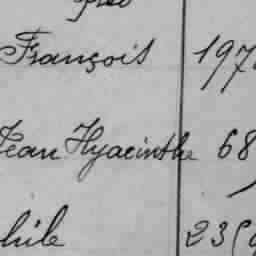 François 197
Jean Hyacinthe 68
hile 23